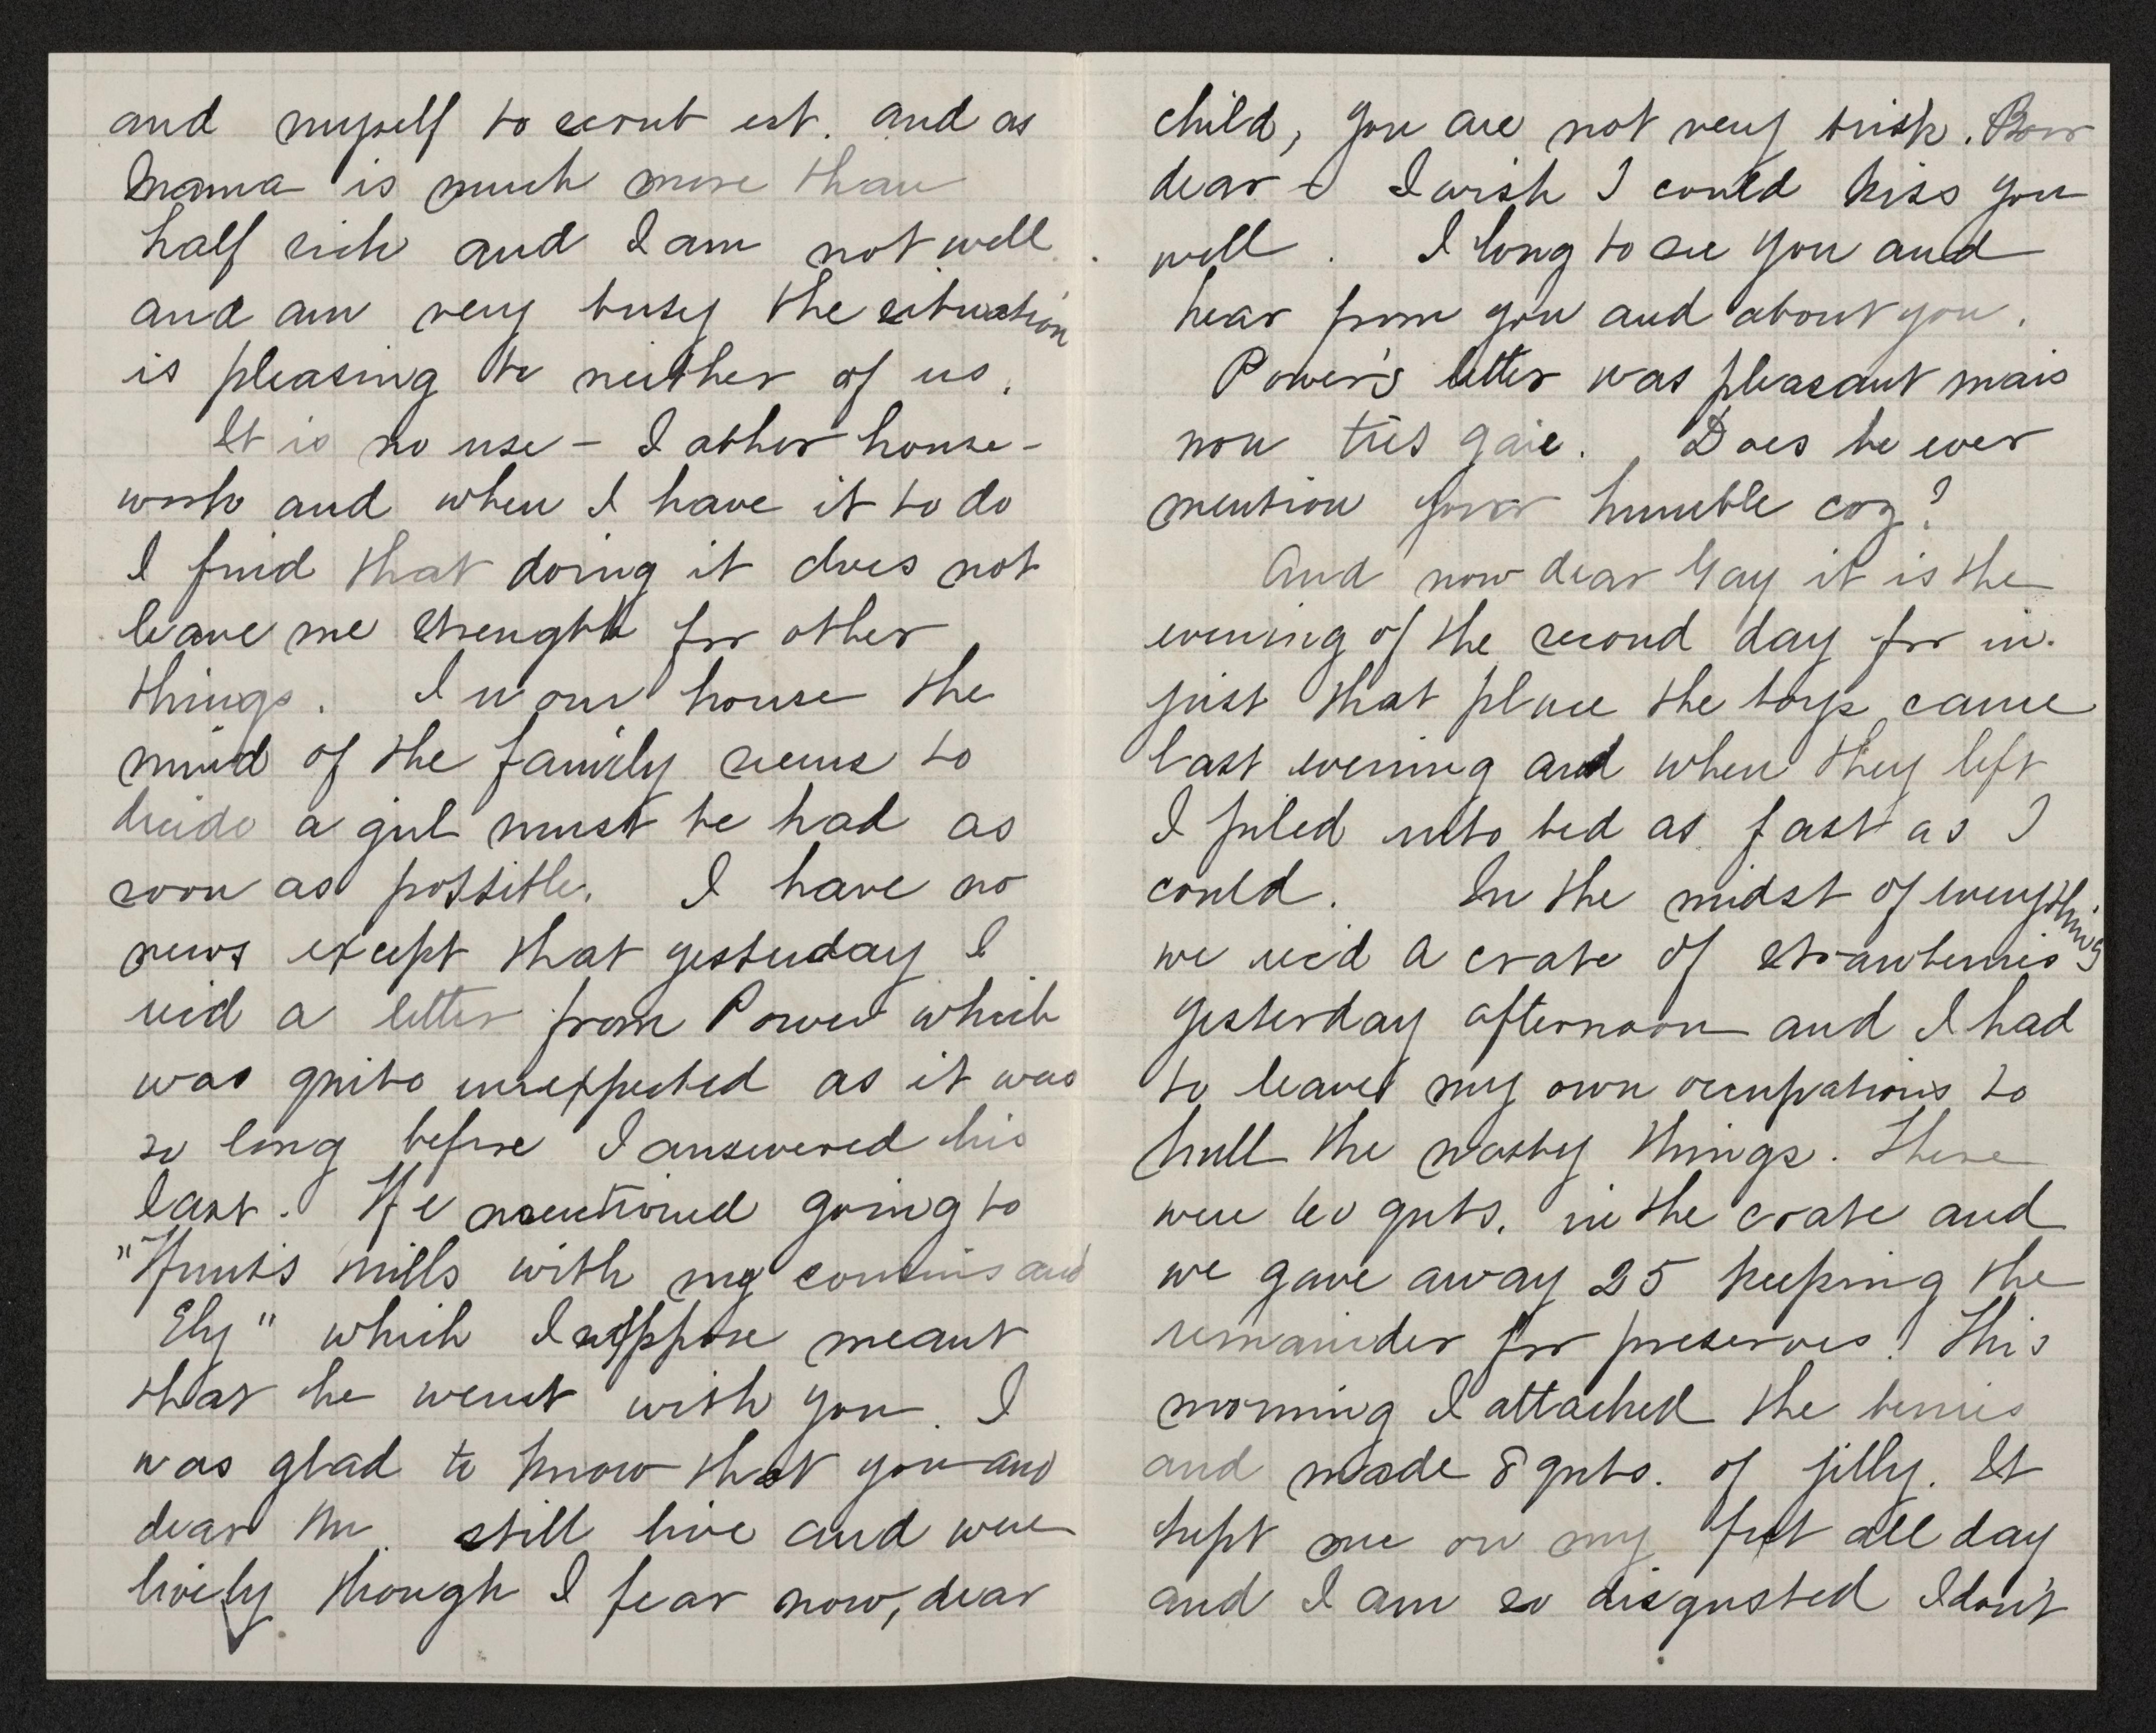 and myself to scrub est. and as
Mama is much more than
half sick and I am not well
and am very busy the situation
is pleasing to neither of us.
It is no use - I abhor house-
work and when I have it to do
I find that doing it does not
leave me strength for other
things. In our house the
mind of the family seems to
decide a girl must be had as
soon as possible. I have no
news except that yesterday I
rec'd a letter from Power which
was quite unexpected as it was
so long before I answered his
last. He mentioned going to
"Hunt's mills with my cousins and
Ely" which I suppose meant
that he went with you. I
was glad to know that you and
dear M. still live and were
lively though I fear now, dear
child, you are not very brisk. Poor
dear - I wish I could kiss you
well. I long to see you and
hear from you and about you.
Power's letter was pleasant mais
non très gaie. Does he ever
mention your humble coz?
And now dear Gay it is the
evening of the second day for in
just that place the boys came
last evening and when they left
I piled into bed as fast as I
could. In the midst of everything
we rec'd a crate of strawberries
yesterday afternoon and I had
to leave my own occupations to
hull the nasty things. There
were 60 qrts. in the crate and
we gave away 25 keeping the
remainder for preserves! This
morning I attacked the berries
and made 8 qrts. of jilly. It
kept me on my feet all day
and I am so disgusted I don't